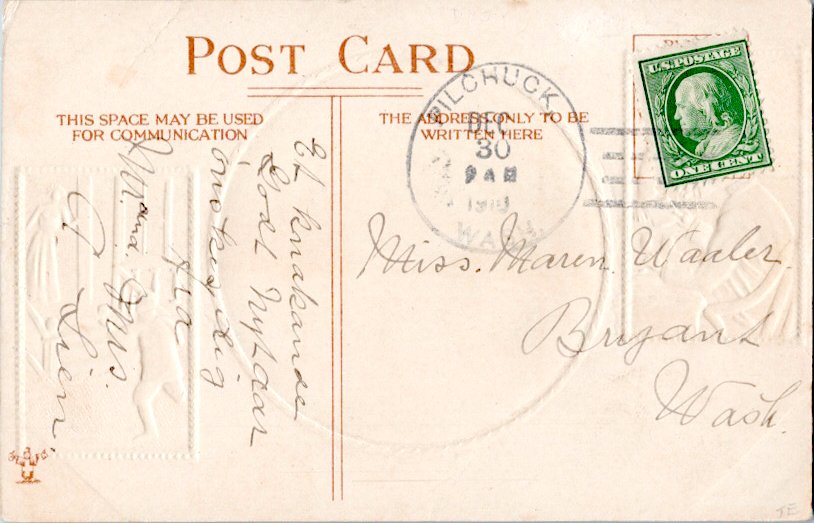 POST CARD
THIS SPACE MAY BE USED
FOR COMMUNICATION
THE ADDRESS ONLY TO BE
WRITTEN HERE
PILCHUCK,
DEC
30
9 AM
1910
WASH.
U.S. POSTAGE
ONE CENT
Et knakande
Godt Nytaar
ønskes dig
fra
Mr. and. Mrs.
Lien.
Miss. Maren. Waaler.
Bryant
Wash.
TE